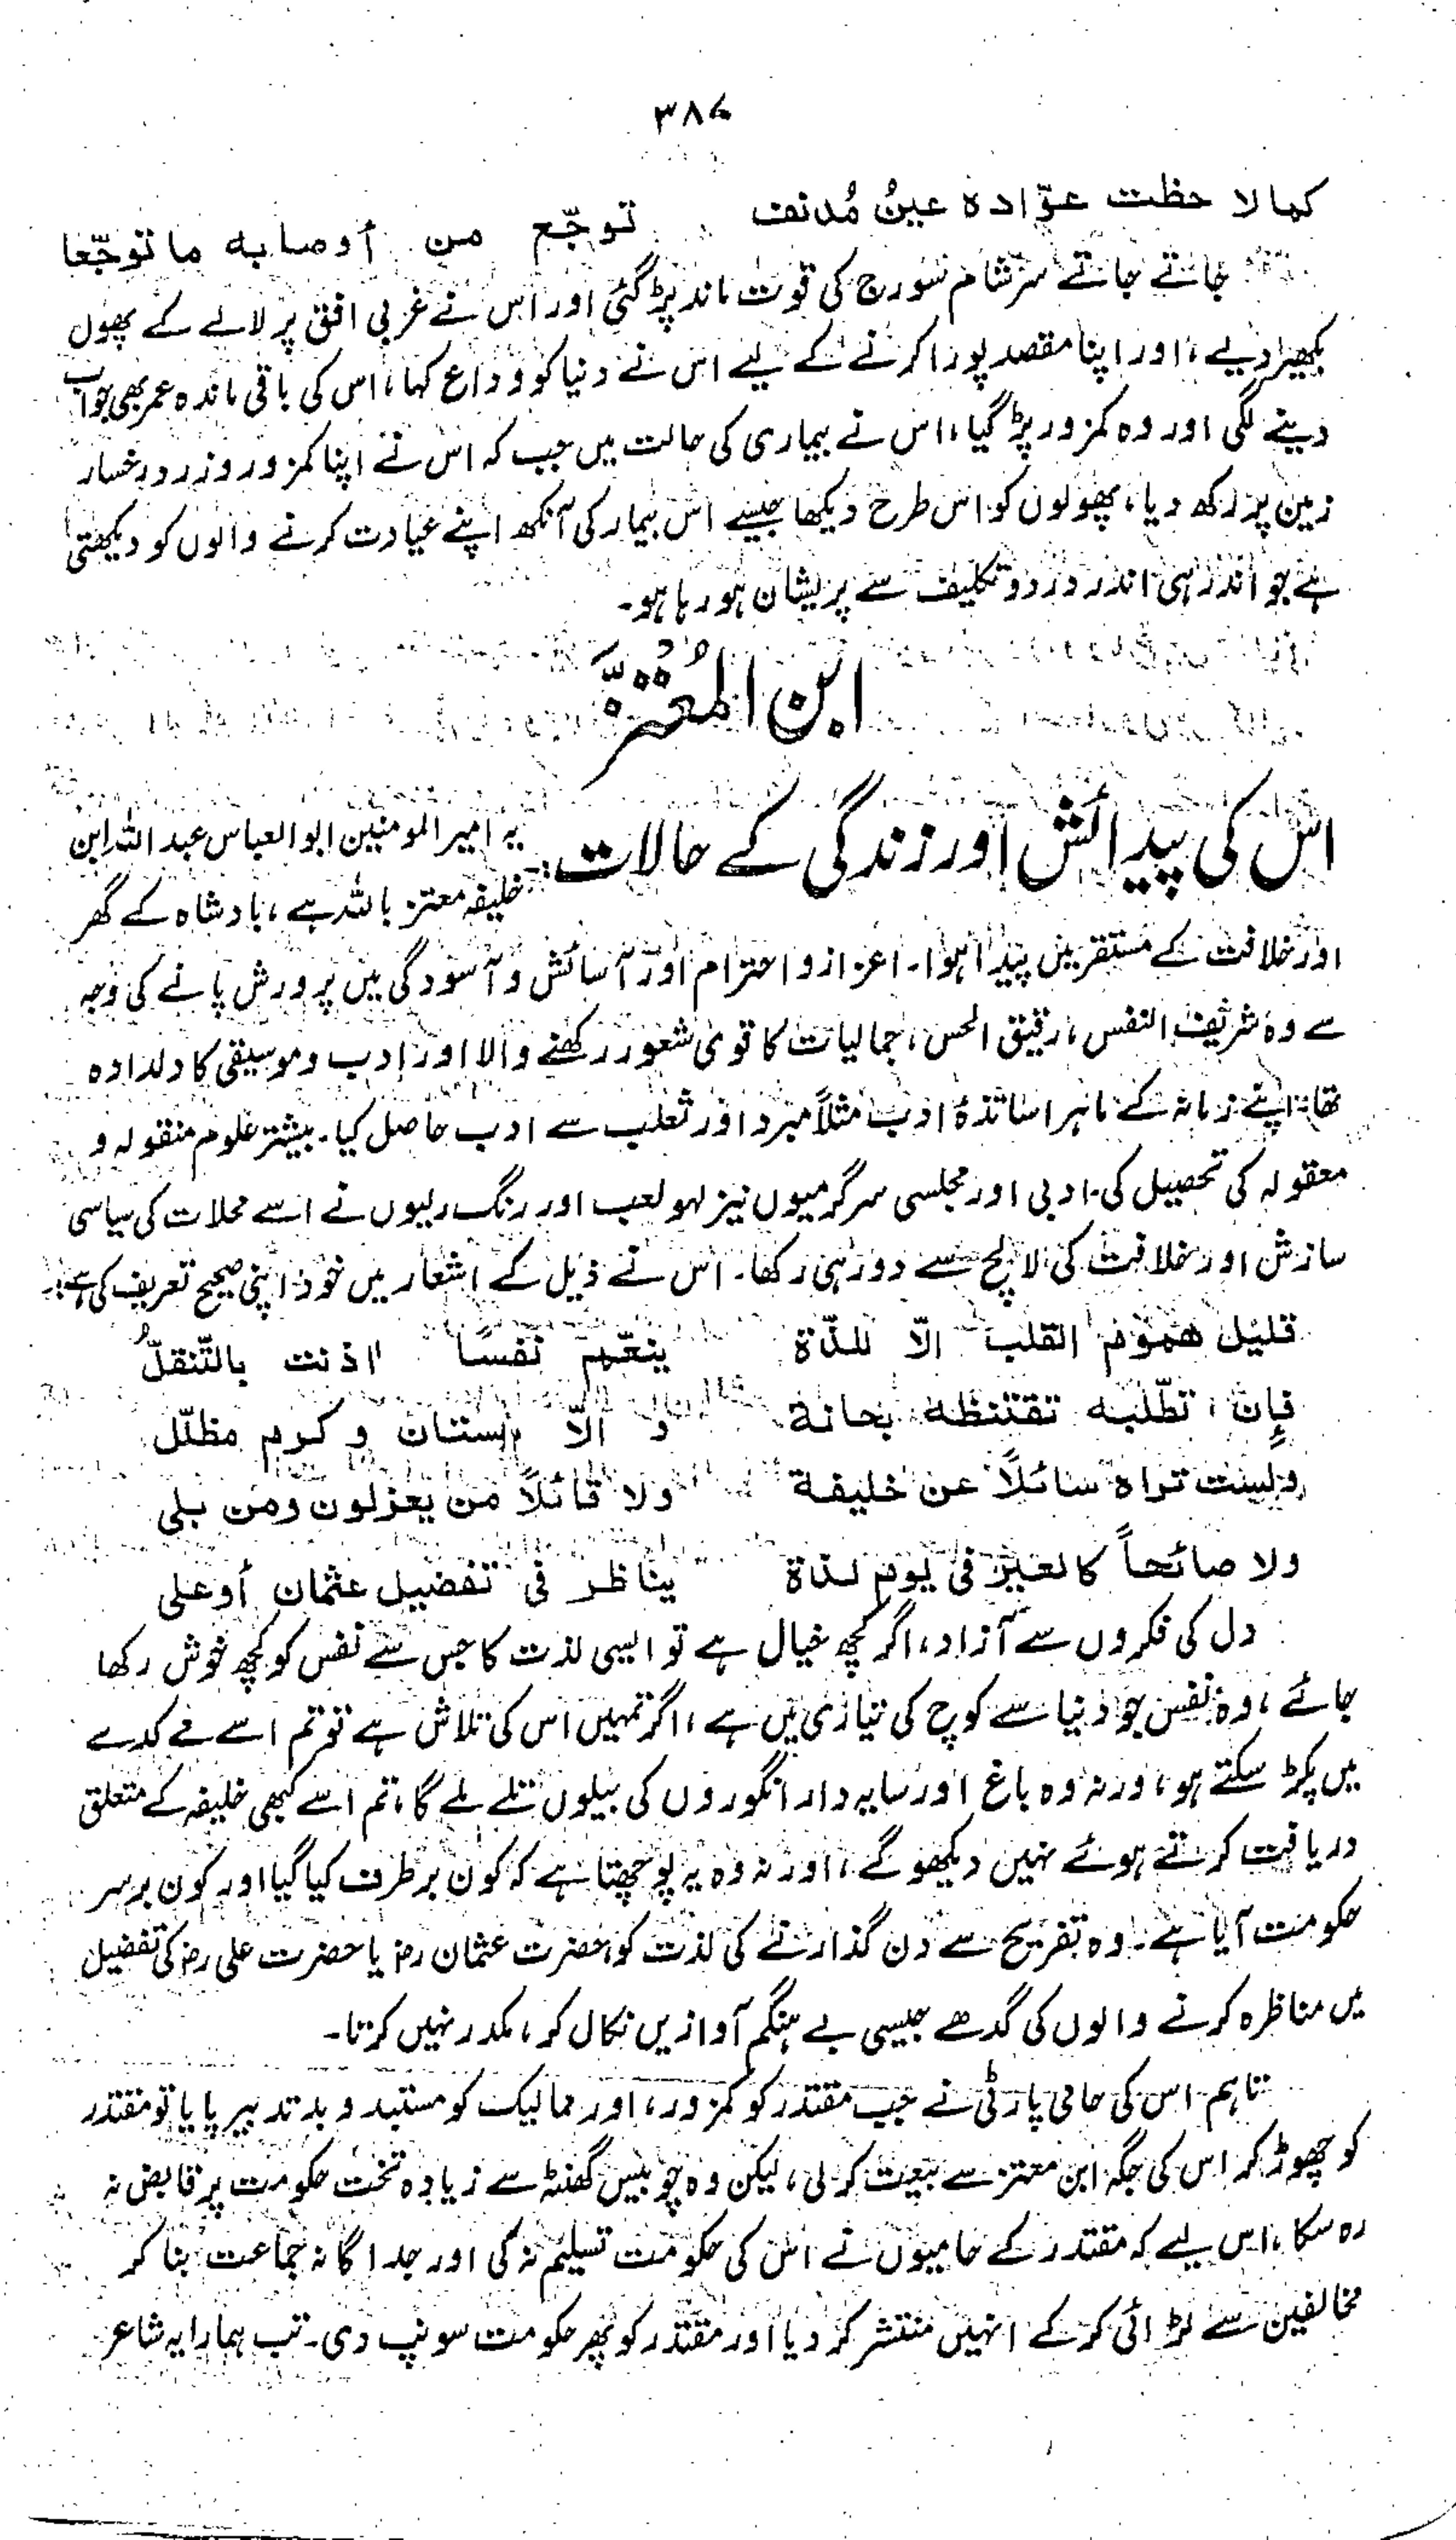 ۳۸۷
كما لاحظت عوّاده عينُ مُدنف توجّع من أوصابه ما توجّعا
جاتے جاتے سرشام سورج کی قوت ماند پڑ گئی اور اس نے غربی افق پر لالے کے پھول
بکھیر دیے، اور اپنا مقصد پورا کرنے کے لیے اس نے دنیا کو وداع کہا، اس کی باقی ماندہ عمر بھی جواب
دینے لگی اور وہ کمزور پڑ گیا، اس نے بیماری کی حالت میں جب کہ اس نے اپنا کمزور و زرد رخسار
زمین پر رکھ دیا، پھولوں کو اس طرح دیکھا جیسے اس بیمار کی آنکھ اپنے عیادت کرنے والوں کو دیکھتی
ہے جو اندر ہی اندر درد و تکلیف سے پریشان ہو رہا ہو۔
ابن المُعْتَزّ
اس کی پیدائش اور زندگی کے حالات:- یہ امیر المومنین ابو العباس عبد اللہ ابن
خلیفہ معتز باللہ ہے، بادشاہ کے گھر
اور خلافت کے مستقر میں پیدا ہوا۔ اعزاز و احترام اور آسائش و آسودگی میں پرورش پانے کی وجہ
سے وہ شریف النفس، رقیق الحس، جمالیات کا قوی شعور رکھنے والا اور ادب و موسیقی کا دلدادہ
تھا، اپنے زمانہ کے ماہر اساتذۂ ادب مثلاً مبرد اور ثعلب سے ادب حاصل کیا۔ بیشتر علوم منقولہ و
معقولہ کی تحصیل کی۔ ادبی اور مجلسی سرگرمیوں نیز لہو لعب اور رنگ رلیوں نے اسے محلات کی سیاسی
سازش اور خلافت کی لالچ سے دور ہی رکھا۔ اس نے ذیل کے اشعار میں خود اپنی صحیح تعریف کی ہے:۔
قليل هموم القلب الّا للذّة ينعّم نفسًا اذنت بالتّنقلُ
فإن تطّلبه تقتنظه بحانة و الّا بستان و كرم مظلّل
ولست تراه سائلًا عن خليفة ولا قائلًا من يعزلون ومن بلى
ولا صائحاً كالعير فى يوم لذة يناظر فى تفضيل عثمان أو على
دل کی فکروں سے آزاد، اگر کچھ خیال ہے تو ایسی لذت کا جس سے نفس کو کچھ خوش رکھا
جائے، وہ نفس جو دنیا سے کوچ کی تیاری میں ہے، اگر تمہیں اس کی تلاش ہے تو تم اسے مے کدے
میں پکڑ سکتے ہو، ورنہ وہ باغ اور سایہ دار انگوروں کی بیلوں تلے ملے گا، تم اسے کبھی خلیفہ کے متعلق
دریافت کرتے ہوئے نہیں دیکھو گے، اور نہ وہ یہ پوچھتا ہے کہ کون برطرف کیا گیا اور کون برسر
حکومت آیا ہے۔ وہ تفریح سے دن گذارنے کی لذت کو حضرت عثمان رض یا حضرت علی رض کی تفضیل
میں مناظرہ کرنے والوں کی گدھے جیسی بے ہنگم آوازیں نکال کر، مکدر نہیں کرتا۔
تاہم اس کی حامی پارٹی نے جب مقتدر کو کمزور، اور ممالیک کو مستبد و بد تدبیر پایا تو مقتدر
کو چھوڑ کر اس کی جگہ ابن معتز سے بیعت کر لی، لیکن وہ چوبیس گھنٹہ سے زیادہ تخت حکومت پر قابض نہ
رہ سکا، اس لیے کہ مقتدر کے حامیوں نے اس کی حکومت تسلیم نہ کی اور جداگانہ جماعت بنا کر
مخالفین سے لڑائی کر کے انہیں منتشر کر دیا اور مقتدر کو پھر حکومت سونپ دی۔ تب ہمارا یہ شاعر